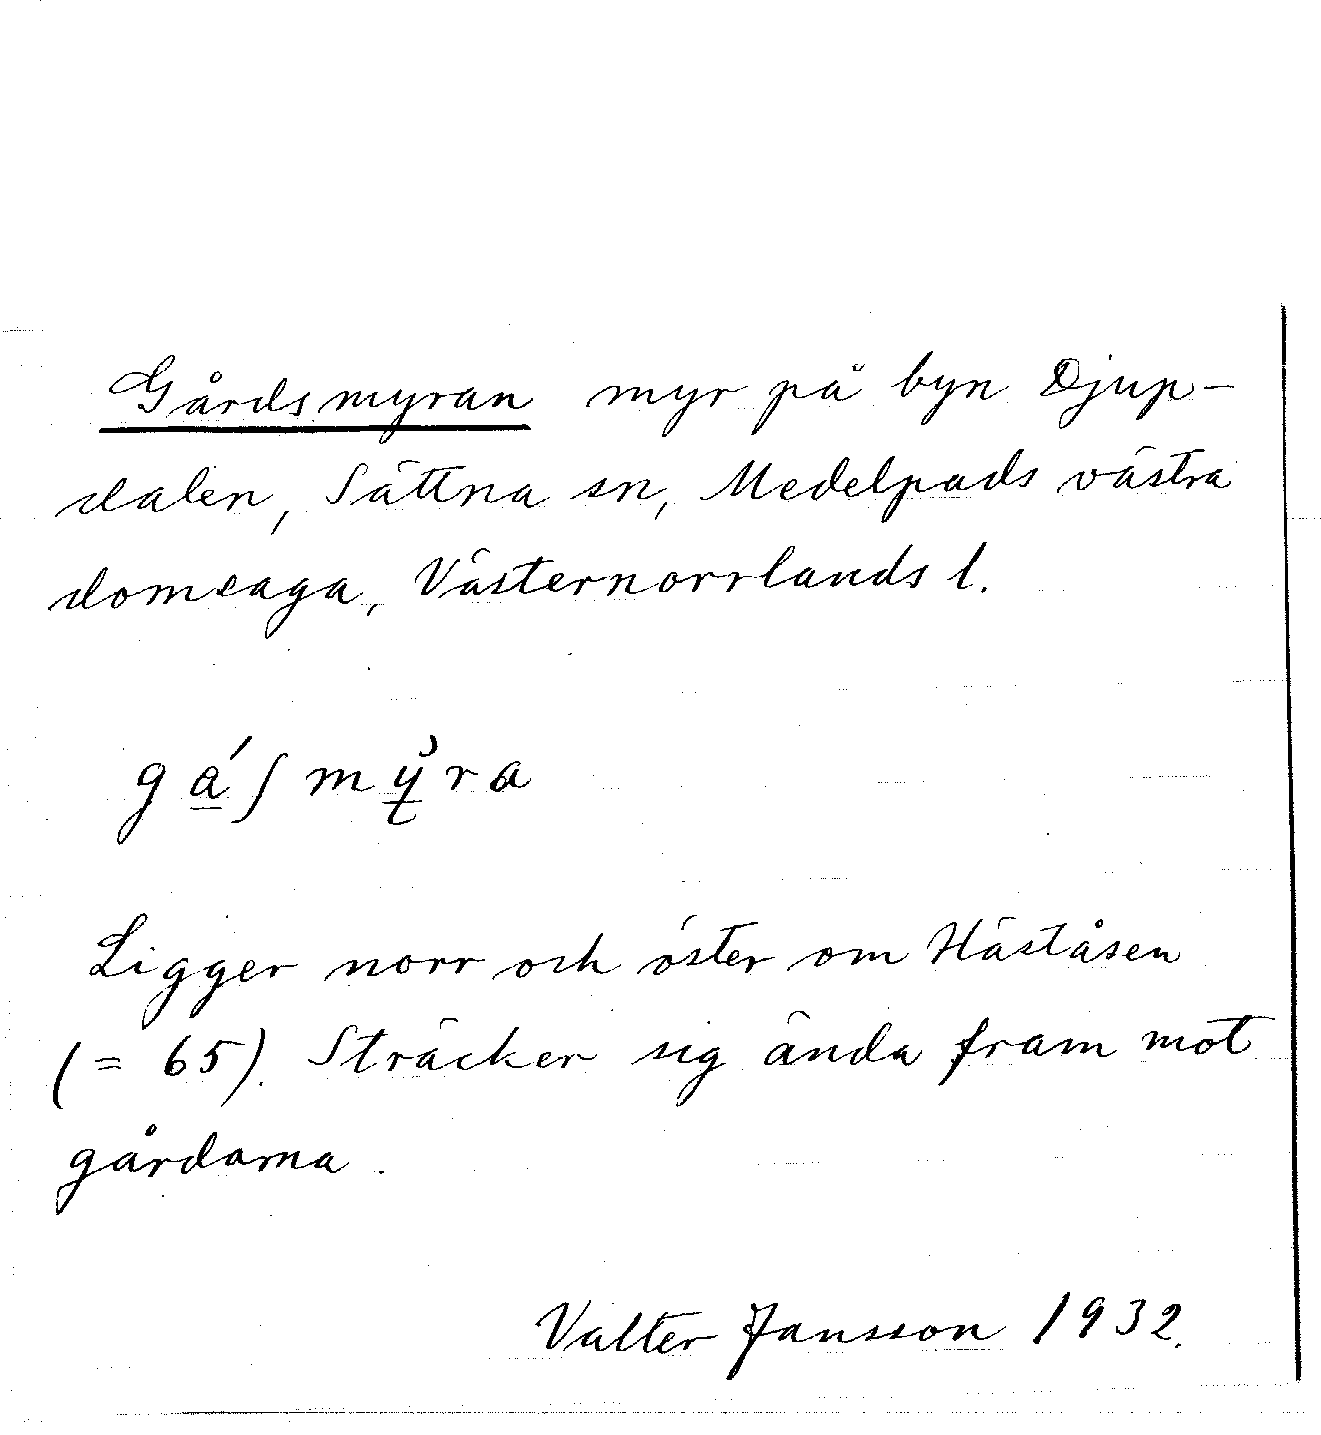 Gårdsmyran myr på byn Djup-
dalen, Sättna sn, Medelpads västra
domsaga, Västernorrlands l.
gáʃmy̠ra
Ligger norr och öster om Häståsen
(= 65). Sträcker sig ända fram mot
gårdarna.
Valter Jansson 1932.